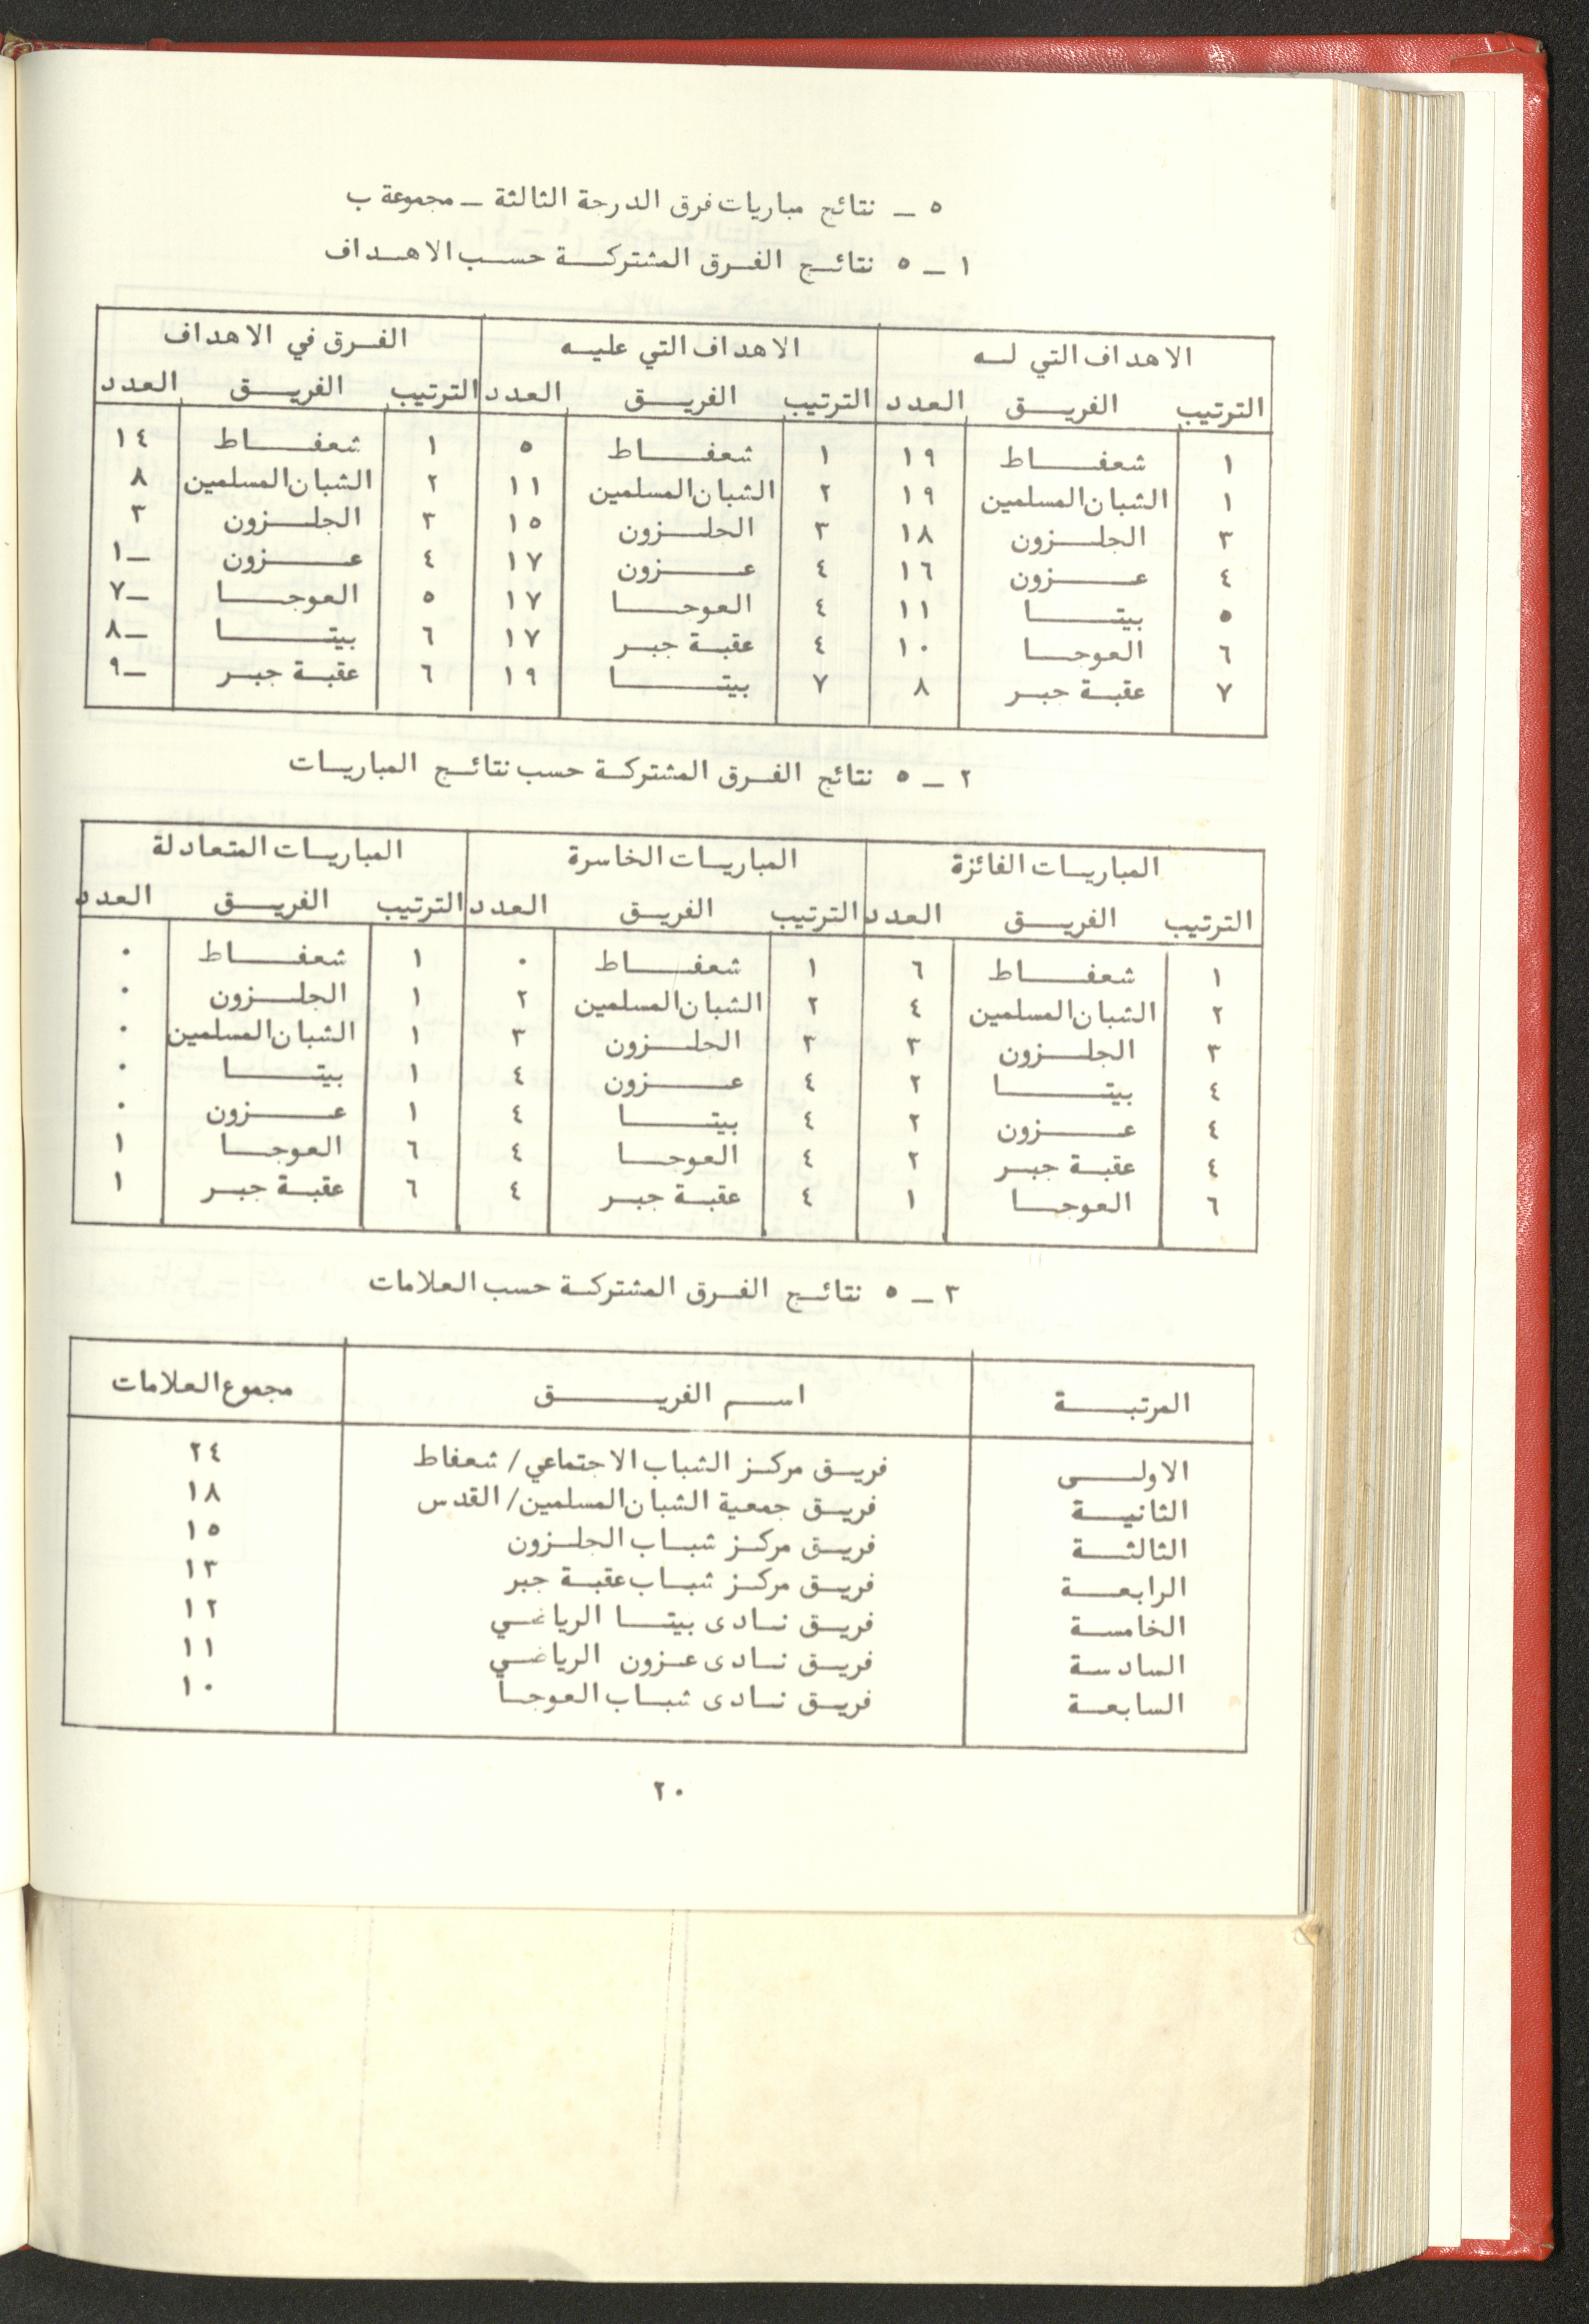 ٥ ــ نتائج مباريات فرق الدرجة الثالثة ــ مجموعة ب
١ ــ ٥ نتائج الفرق المشتركة حسب الاهداف
الاهداف التي له الاهداف التي عليه الفرق في الاهداف
الترتيب الفريق العدد الترتيب الفريق العدد الترتيب الفريق العدد
١ شعفاط ١٩ ١ شعفاط ٥ ١ شعفاط ١٤
١ الشبان المسلمين ١٩ ٢ الشبان المسلمين ١١ ٢ الشبان المسلمين ٨
٣ الجلزون ١٨ ٣ الجلزون ١٥ ٣ الجلزون ٣
٤ عزون ١٦ ٤ عزون ١٧ ٤ عزون ــ١
٥ بيتا ١١ ٤ العوجا ١٧ ٥ العوجا ــ٧
٦ العوجا ١٠ ٤ عقبة جبر ١٧ ٦ بيتا ــ٨
٧ عقبة جبر ٨ ٧ بيتا ١٩ ٦ عقبة جبر ــ٩
٢ ــ ٥ نتائج الفرق المشتركة حسب نتائج المباريات
المباريات الفائزة المباريات الخاسرة المباريات المتعادلة
الترتيب الفريق العدد الترتيب الفريق العدد الترتيب الفريق العدد
١ شعفاط ٦ ١ شعفاط ٠ ١ شعفاط ٠
٢ الشبان المسلمين ٤ ٢ الشبان المسلمين ٢ ١ الجلزون ٠
٣ الجلزون ٣ ٣ الجلزون ٣ ١ الشبان المسلمين ٠
٤ بيتا ٢ ٤ عزون ٤ ١ بيتا ٠
٤ عزون ٢ ٤ بيتا ٤ ١ عزون ٠
٤ عقبة جبر ٢ ٤ العوجا ٤ ٦ العوجا ١
٦ العوجا ١ ٤ عقبة جبر ٤ ٦ عقبة جبر ١
٣ ــ ٥ نتائج الفرق المشتركة حسب العلامات
المرتبة اسم الفريق مجموع العلامات
الاولى فريق مركز الشباب الاجتماعي/ شعفاط ٢٤
الثانية فريق جمعية الشبان المسلمين/ القدس ١٨
الثالثة فريق مركز شباب الجلزون ١٥
الرابعة فريق مركز شباب عقبة جبر ١٣
الخامسة فريق نادى بيتا الرياضي ١٢
السادسة فريق نادى عزون الرياضي ١١
السابعة فريق نادى شباب العوجا ١٠
٢٠